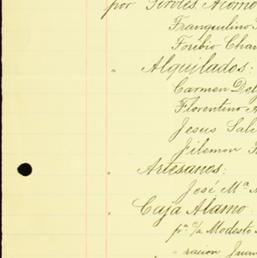 por Peones Acomo
Franquilino
Toribio Chav
" Alquilados:
Carmen Del
Florentino A
Jesus Sali
Filemon
" Artesanos:
José Mª
" Caja Alamo
pª c/a Modesto
" racion Juan